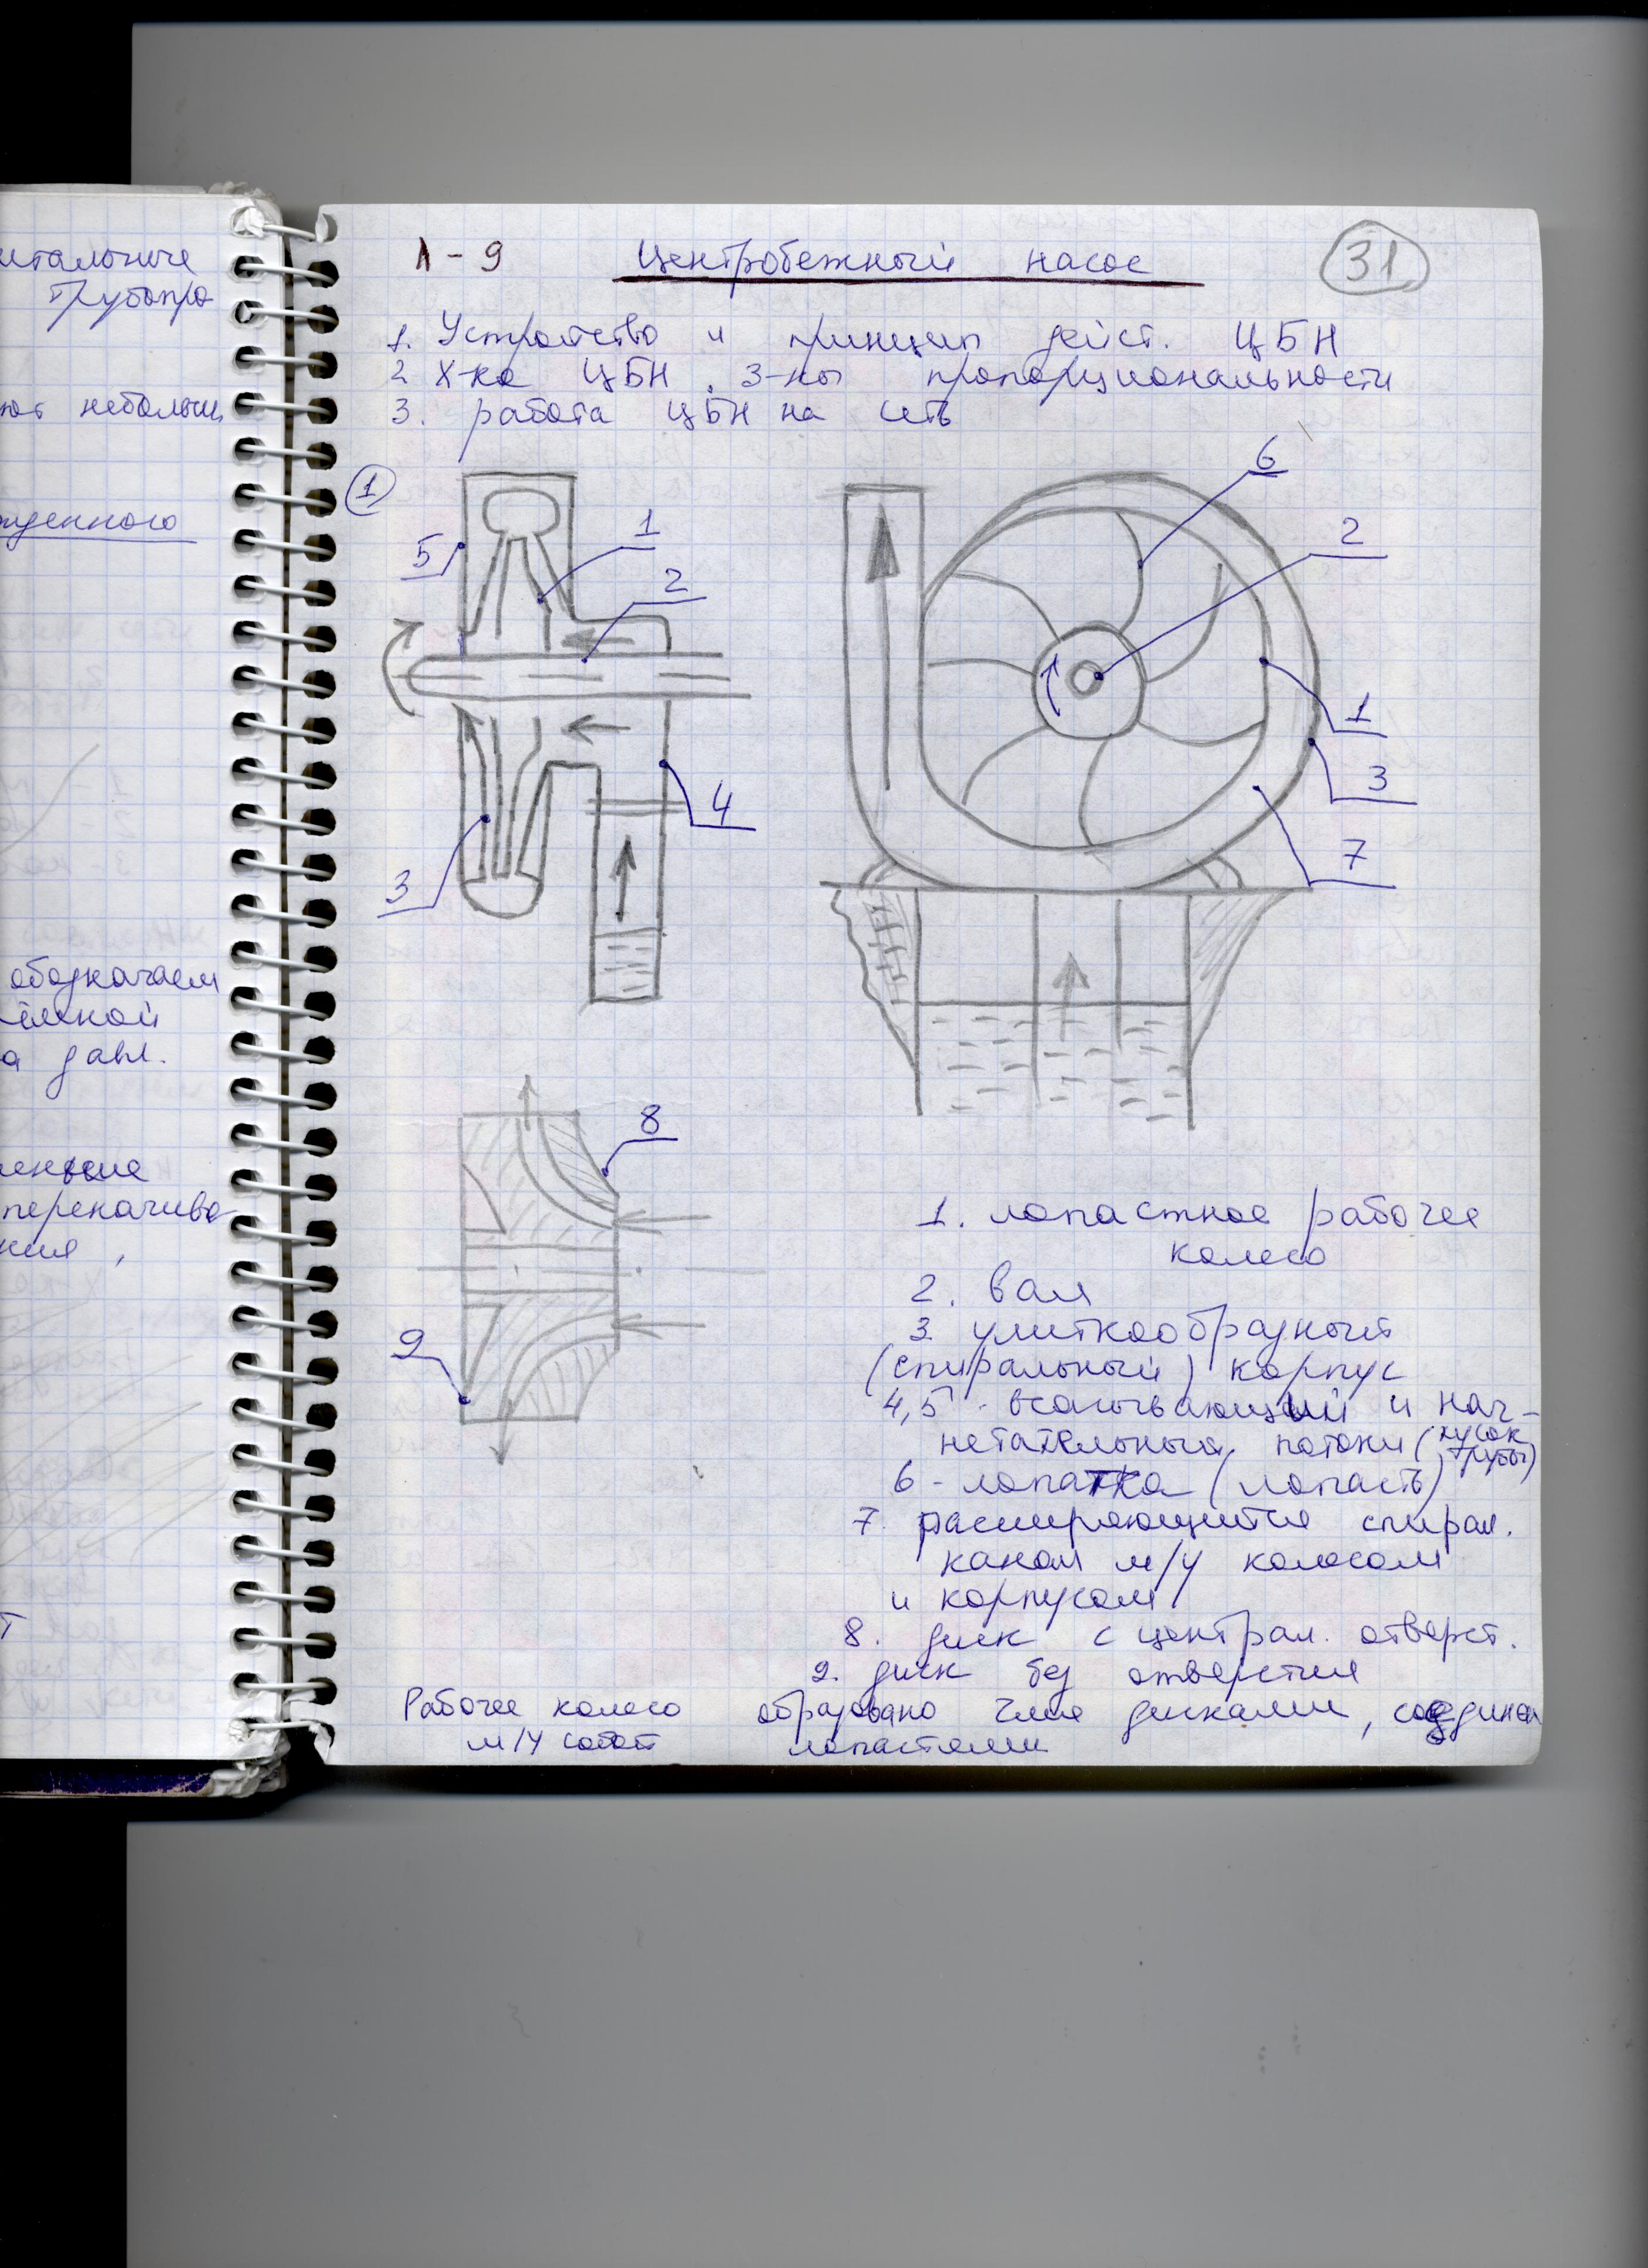 итальные
трубопро
ют небольш
жденного
обозначаем
а давл.
перекачива
ния,
Л-9 Центробежный насос 31
1. Устройство и принцип дейст. ЦБН
2 Х-ка ЦБН. З-ны пропорциональности
3. работа ЦБН на сеть
1
5
1
2
4
3
6
2
1
3
7
8
9
1. лопастное рабочее
колесо
2. вал
3. улиткообразный
(спиральный) корпус
4,5 - всасывающий и наг-
нетательный потоки (кусок
трубы)
6 - лопатка (лопасть)
7. расширяющийся спирал.
канал м/у колесом
и корпусом
8. диск с централ. отверст.
9. диск без отверстия
Рабочее колесо образовано 2мя дисками, соединен
м/у собой лопастями